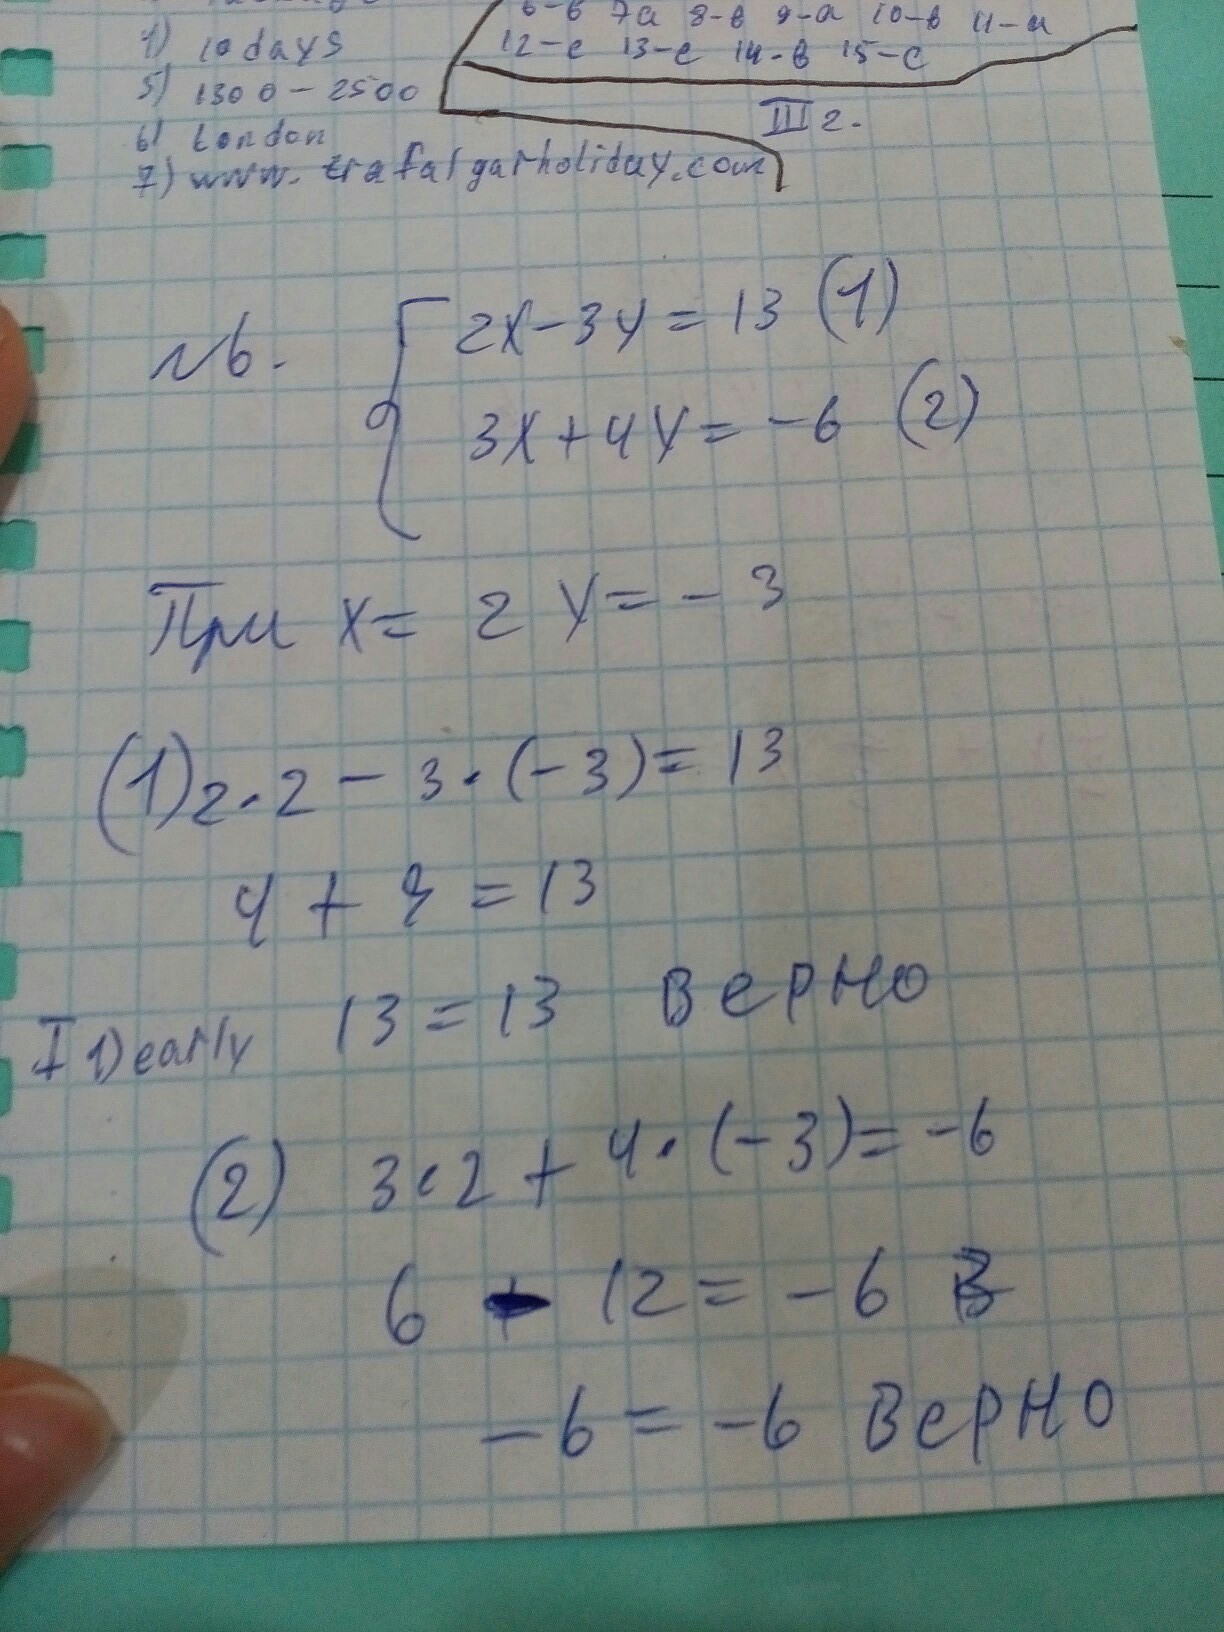 1) 10 days
5) 1300 - 2500
6) London
7) www.trafalgarholiday.com
6-в 7а 8-в 9-а 10-в 11-а
12-с 13-с 14-в 15-с
III 2.
N6.
2x-3y=13 (1)
3x+4y=-6 (2)
При x= 2 y=-3
(1) 2·2-3·(-3)=13
4+9=13
13=13 Верно
I 1) early
(2) 3·2+4·(-3)=-6
6 - 12=-6 В
-6=-6 Верно